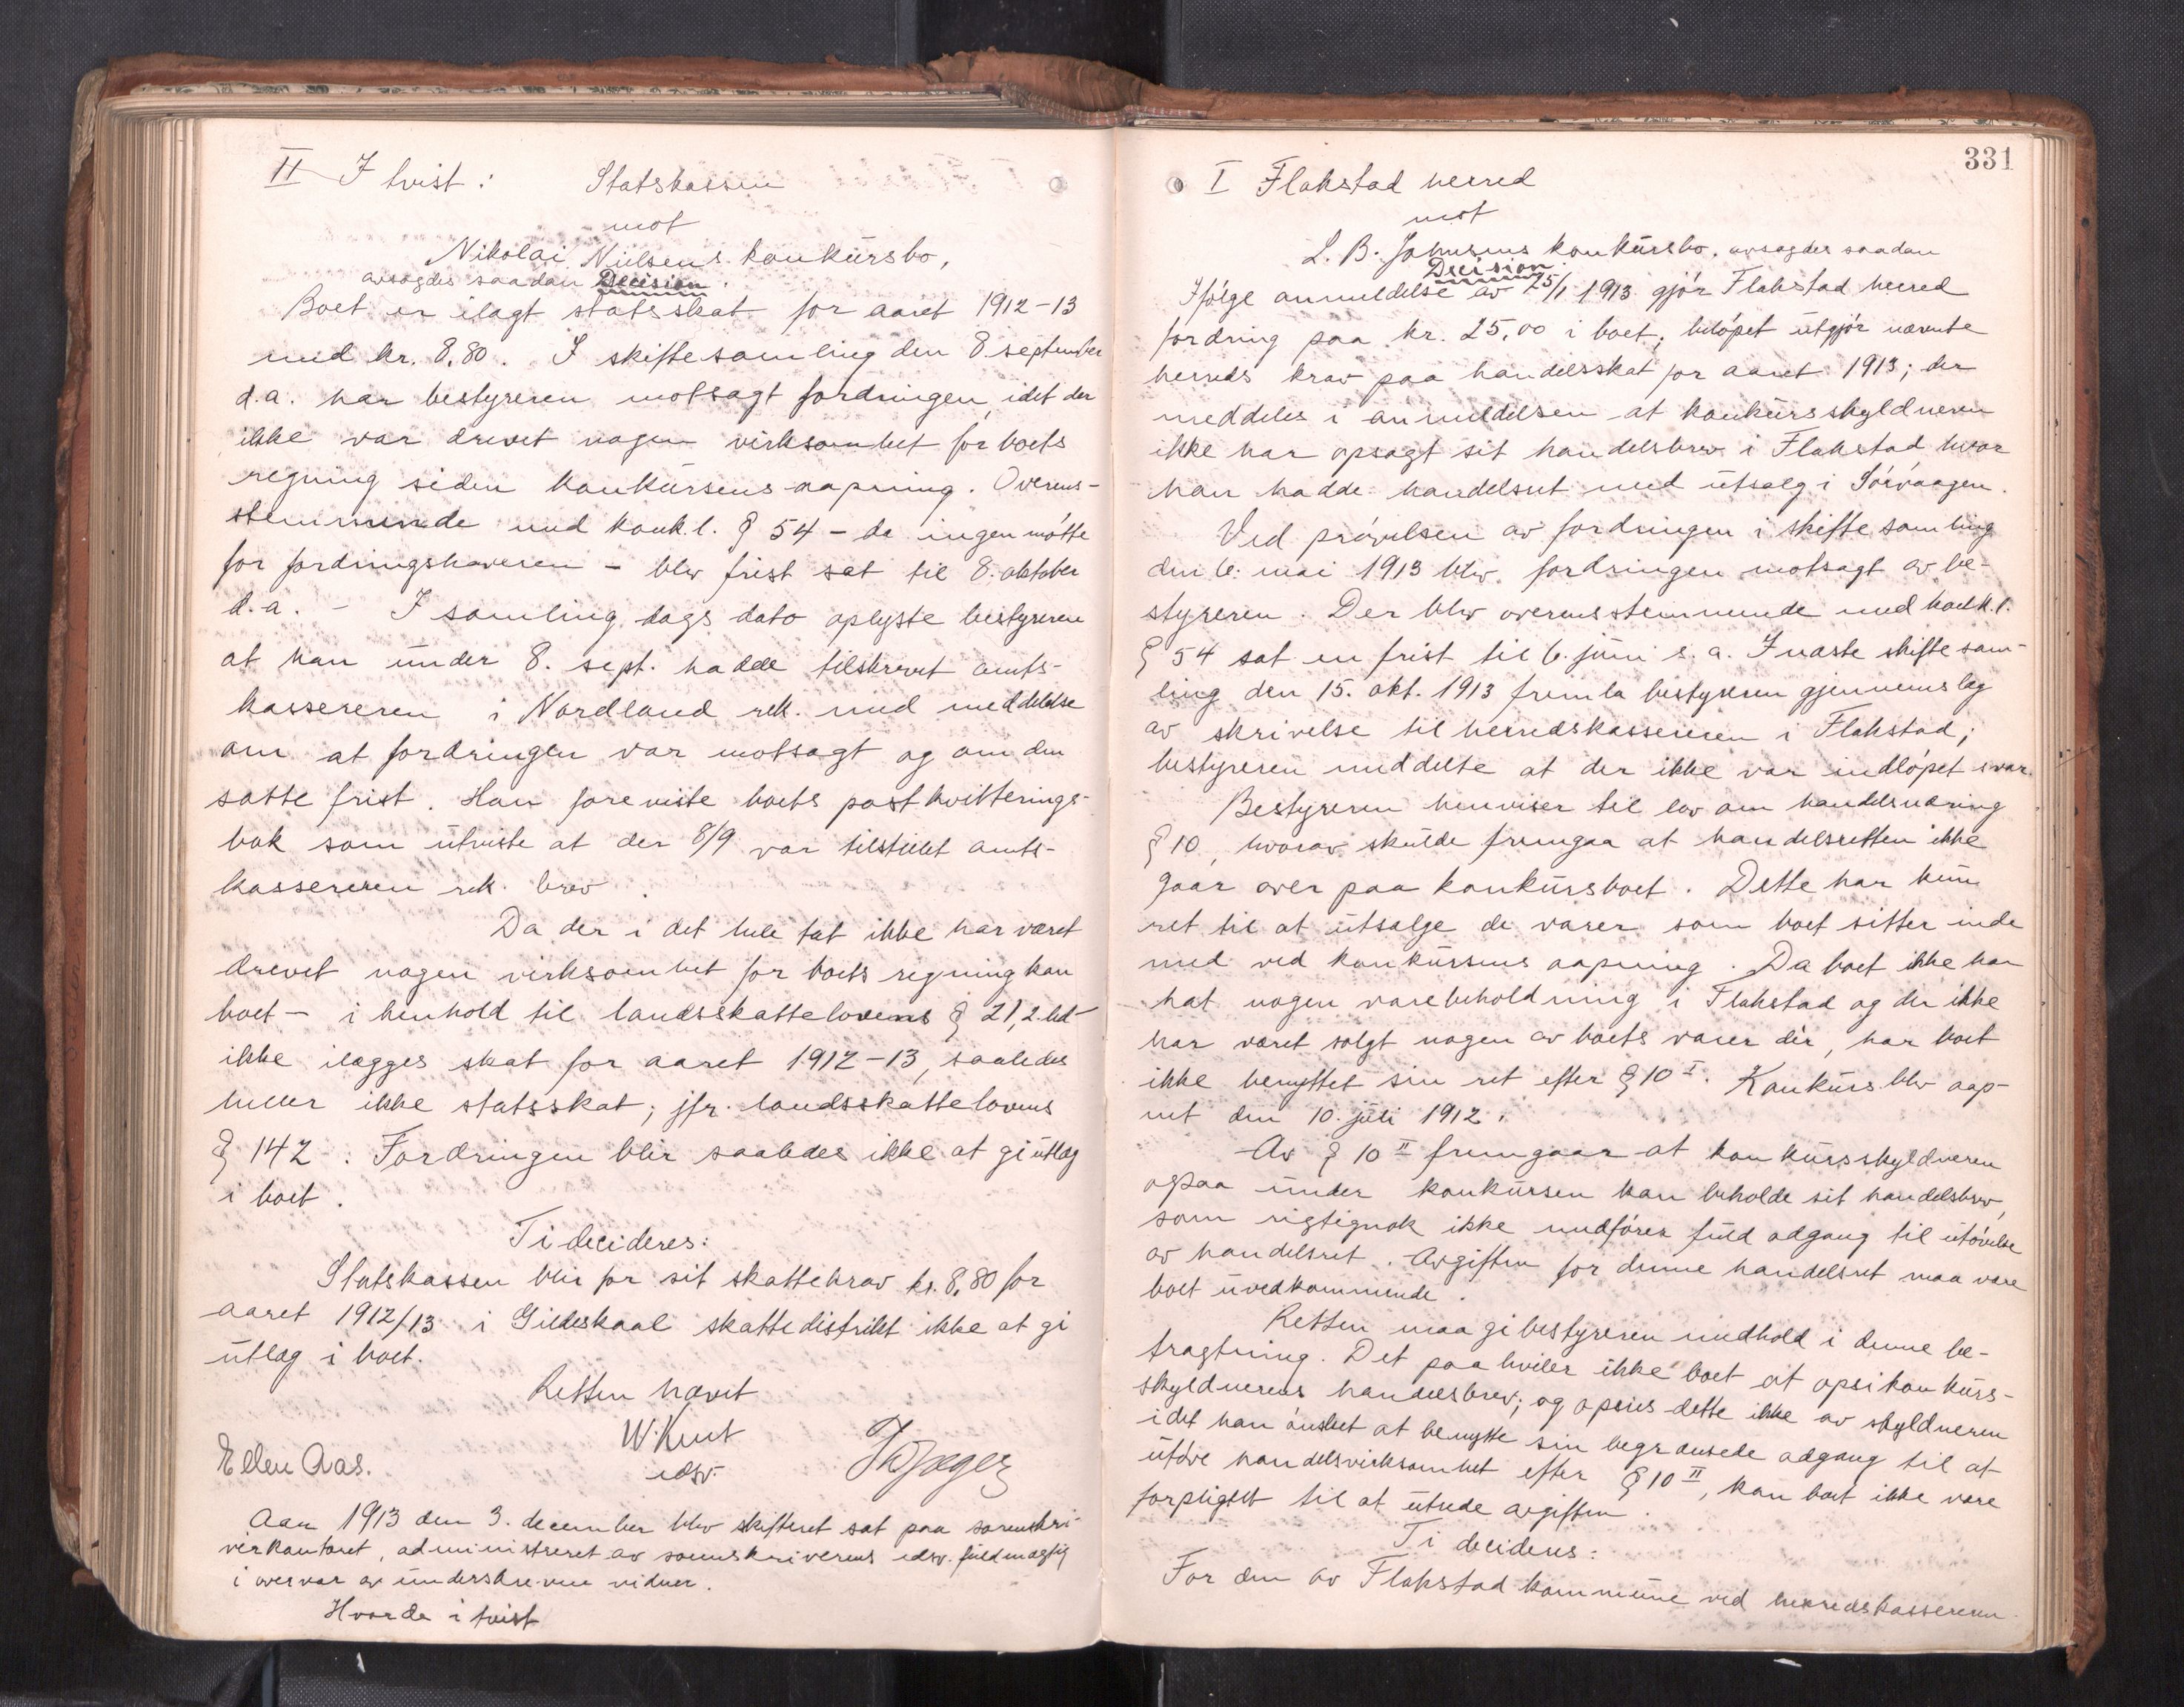 II I tvist: Statskassen
mot
Nikolai Nielsens konkursbo,
avsagdes saadan Decision.
Boet er ilagt statsskat for aaret 1912-13
med kr. 8,80. I skiftesamling den 8. september
d.a. har bestyreren motsagt fordringen, idet der
ikke var drevet nogen virksomhet for boets
regning siden konkursens aapning. Overens-
stemmende med konk.l. § 54 - da ingen møtte
for fordringshaveren - blev frist sat til 8. oktober
d.a. - I samling dags dato oplyste bestyreren
at han under 8. sept. hadde tilskrevet amts-
kassereren i Nordland rek. med meddelelse
om at fordringen var motsagt og om den
satte frist. Han foreviste boets postkvitterings-
bok som utviste at der 8/9 var tilstillet amts-
kassereren rek. brev.
Da der i det hele tat ikke har været
drevet nogen virksomhet for boets regning kan
boet - i henhold til landsskattelovens § 21, 2. led -
ikke ilægges skat for aaret 1912-13, saaledes
heller ikke statsskat; jfr. landsskattelovens
§ 142. Fordringen blir saaledes ikke at gi utlæg
i boet.
Ti decideres:
Statskassen blir for sit skattekrav kr. 8,80 for
aaret 1912/13 i Gildeskaal skattedistrikt ikke at gi
utlæg i boet.
Retten hævet
W. Knut
edsv.
Ellen Aas.
Aar 1913 den 3. december blev skifteret sat paa sorenskri-
verkontoret, administreret av sorenskriverens edsv. fuldmægtig
i overvær av underskrevne vidner.
Hvorda i tvist
331
I Flakstad herred
mot
L. B. Johnsens konkursbo, avsagdes saadan
Decision.
Ifølge anmeldelse av 25/1 1913 gjør Flakstad herred
fordring paa kr. 25,00 i boet; beløpet utgjør nævnte
herreds krav paa handelsskat for aaret 1913; der
meddeles i anmeldelsen at konkursskyldneren
ikke har opsagt sit handelsbrev i Flakstad hvor
han hadde handelsret med utsalg i Sørvaagen.
Ved prøvelsen av fordringen i skiftesamling
den 6. mai 1913 blev fordringen motsagt av be-
styreren. Der blev overensstemmende med konk.l.
§ 54 sat en frist til 6. juni s.a. I næste skiftesam-
ling den 15. okt. 1913 fremla bestyreren gjennemslag
av skrivelse til herredskassereren i Flakstad;
bestyreren meddelte at der ikke var indløpet svar.
Bestyreren henviser til lov om handelsnæring
§ 10, hvorav skulde fremgaa at handelsretten ikke
gaar over paa konkursboet. Dette har kun
ret til at utsælge de varer som boet sitter inde
med ved konkursens aapning. Da boet ikke har
hat nogen varebeholdning i Flakstad og der ikke
har været solgt nogen av boets varer dèr, har boet
ikke benyttet sin ret efter § 10 I. Konkurs blev aap-
net den 10. juli 1912.
Av § 10 II fremgaar at konkursskyldneren
ogsaa under konkursen kan beholde sit handelsbrev,
som rigtignok ikke medfører fuld adgang til utøvelse
av handelsret. Avgiften for denne handelsret maa være
boet uvedkommende.
Retten maa gi bestyreren medhold i denne be-
tragtning. Det paahviler ikke boet at opsi konkurs-
skyldnerens handelsbrev; og opsies dette ikke av skyldneren
idet han ønsket at benytte sin begrænsede adgang til at
utøve handelsvirksomhet efter § 10 II, kan boet ikke være
forpligtet til at utrede avgiften.
Ti decideres:
For den av Flakstad kommune ved herredskassereren